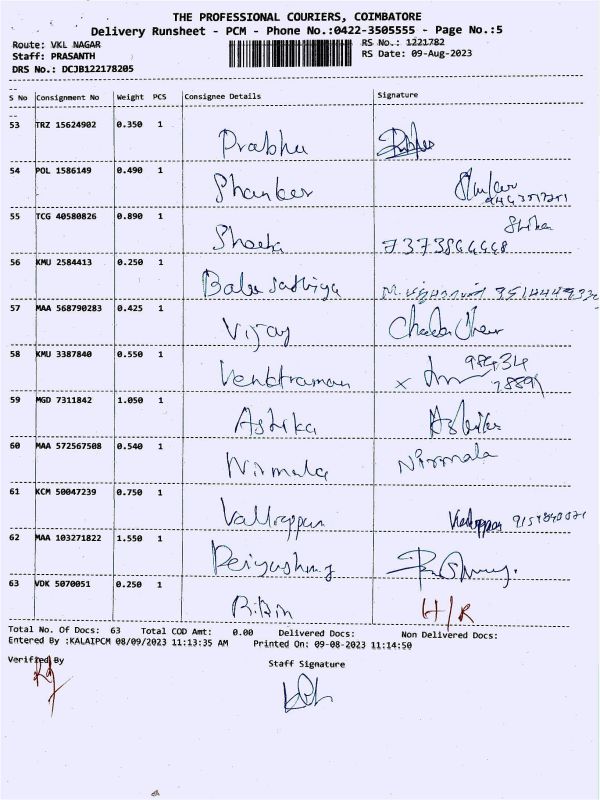 THE PROFESSIONAL COURIERS, COIMBATORE
Delivery Runsheet - PCM - Phone No.:0422-3505555 - Page No.:5
Route: VKL NAGAR
RS No.: 1221782
Staff: PRASANTH
RS Date: 09-Aug-2023
DRS No.: DCJB122178205
S No Consignment No Weight PCS Consignee Details Signature
53 TRZ 15624902 0.350 1 Prabhu
54 POL 1586149 0.490 1 Shanker
55 TCG 40580826 0.890 1
56 KMU 2584413 0.250 1 Babu Sathiya
57 MAA 568790283 0.425 1 Vijay
58 KMU 3387840 0.550 1 Venktraman x 98434
59 MGD 7311842 1.050 1 Ashika Ashika
60 MAA 572567508 0.540 1 Nirmala Nirmala
61 KCM 50047239 0.750 1 Valliappan
62 MAA 103271822 1.550 1
63 VDK 5070051 0.250 1 H/R
Total No. Of Docs: 63 Total COD Amt: 0.00 Delivered Docs: Non Delivered Docs:
Entered By :KALAIPCM 08/09/2023 11:13:35 AM Printed On: 09-08-2023 11:14:50
Verified By Staff Signature